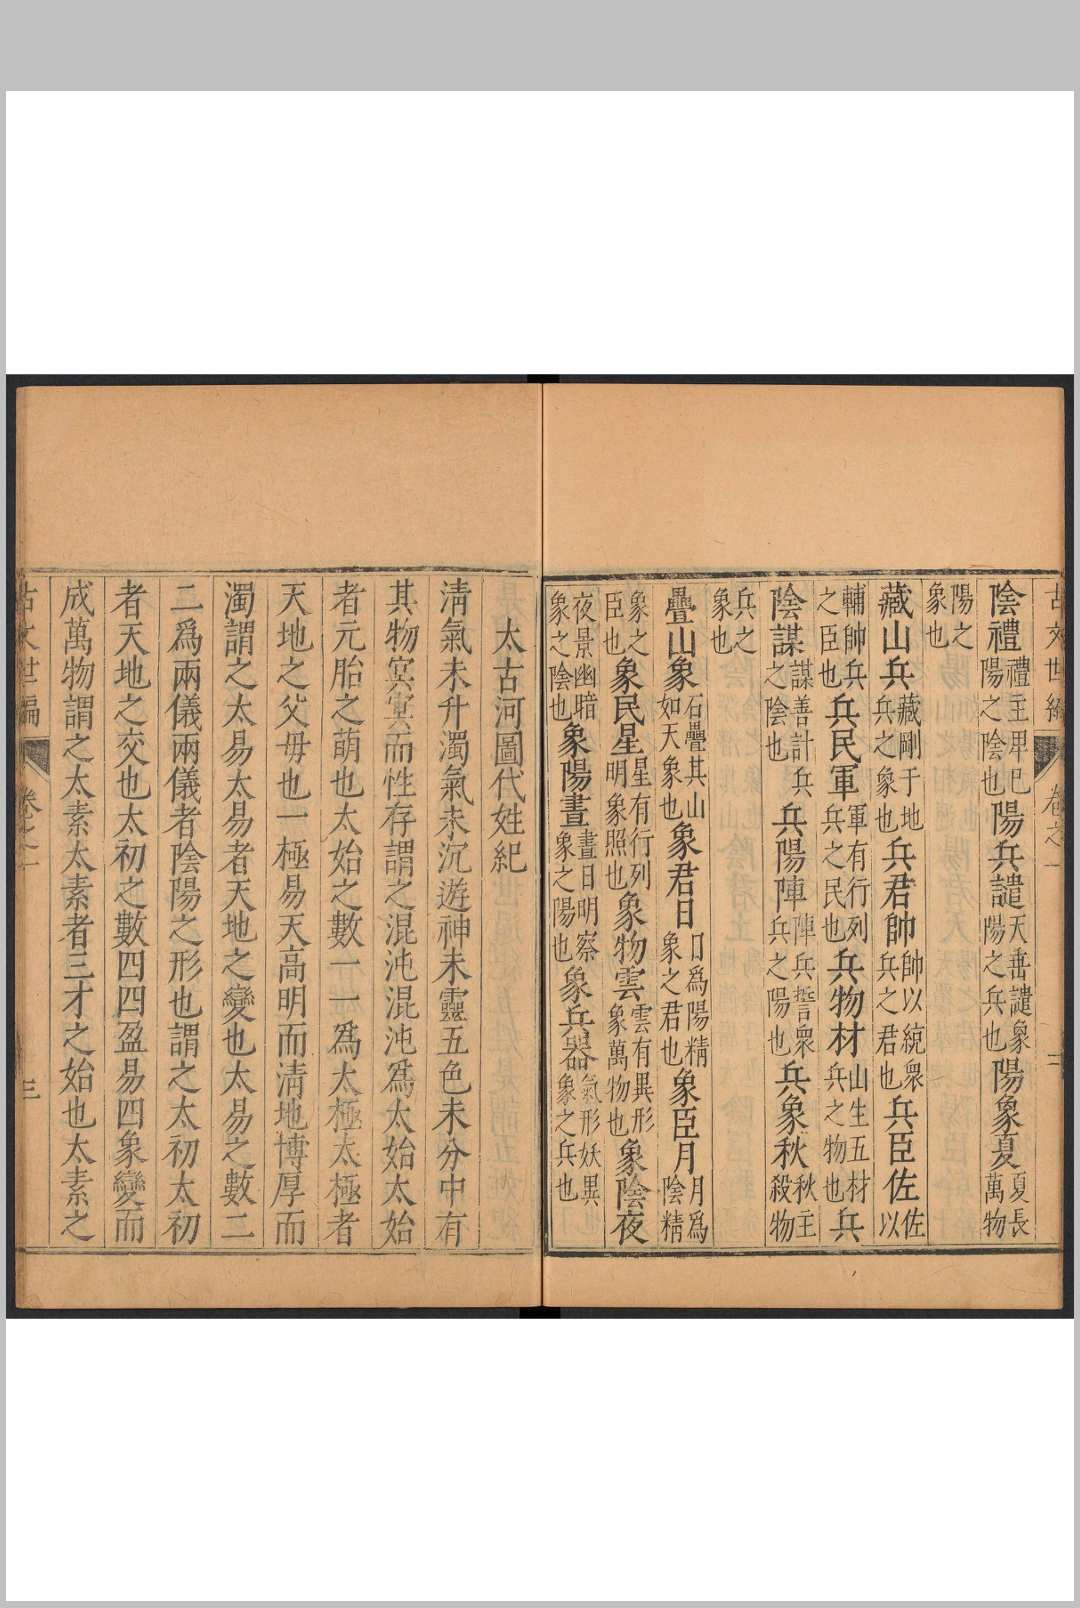 古文世編 卷之一 二
陰禮禮主甲巳陽之陰也陽兵譴天垂譴象陽之兵也陽象夏夏長萬物
陽之象也
藏山兵藏剛于地兵之象也兵君帥帥以統衆兵之君也兵臣佐佐以
輔帥兵之臣也兵民軍軍有行列兵之民也兵物材山生五材兵之物也兵
陰謀謀善計兵之陰也兵陽陣陣兵誓衆兵之陽也兵象秋秋主殺物
兵之象也
疊山象石疊其山如天象也象君日日爲陽精象之君也象臣月月爲陰精
象之臣也象民星星有行列明象照也象物雲雲有異形象萬物也象陰夜
夜景幽暗象之陰也象陽晝晝日明察象之陽也象兵器氣形妖異象之兵也
太古河圖代姓紀
淸氣未升濁氣未沉遊神未靈五色未分中有
其物冥冥而性存謂之混沌混沌爲太始太始
者元胎之萌也太始之數一一爲太極太極者
天地之父母也一極易天高明而淸地博厚而
濁謂之太易太易者天地之變也太易之數二
二爲兩儀兩儀者陰陽之形也謂之太初太初
者天地之交也太初之數四四盈易四象變而
成萬物謂之太素太素者三才之始也太素之
古文世編 卷之一 三